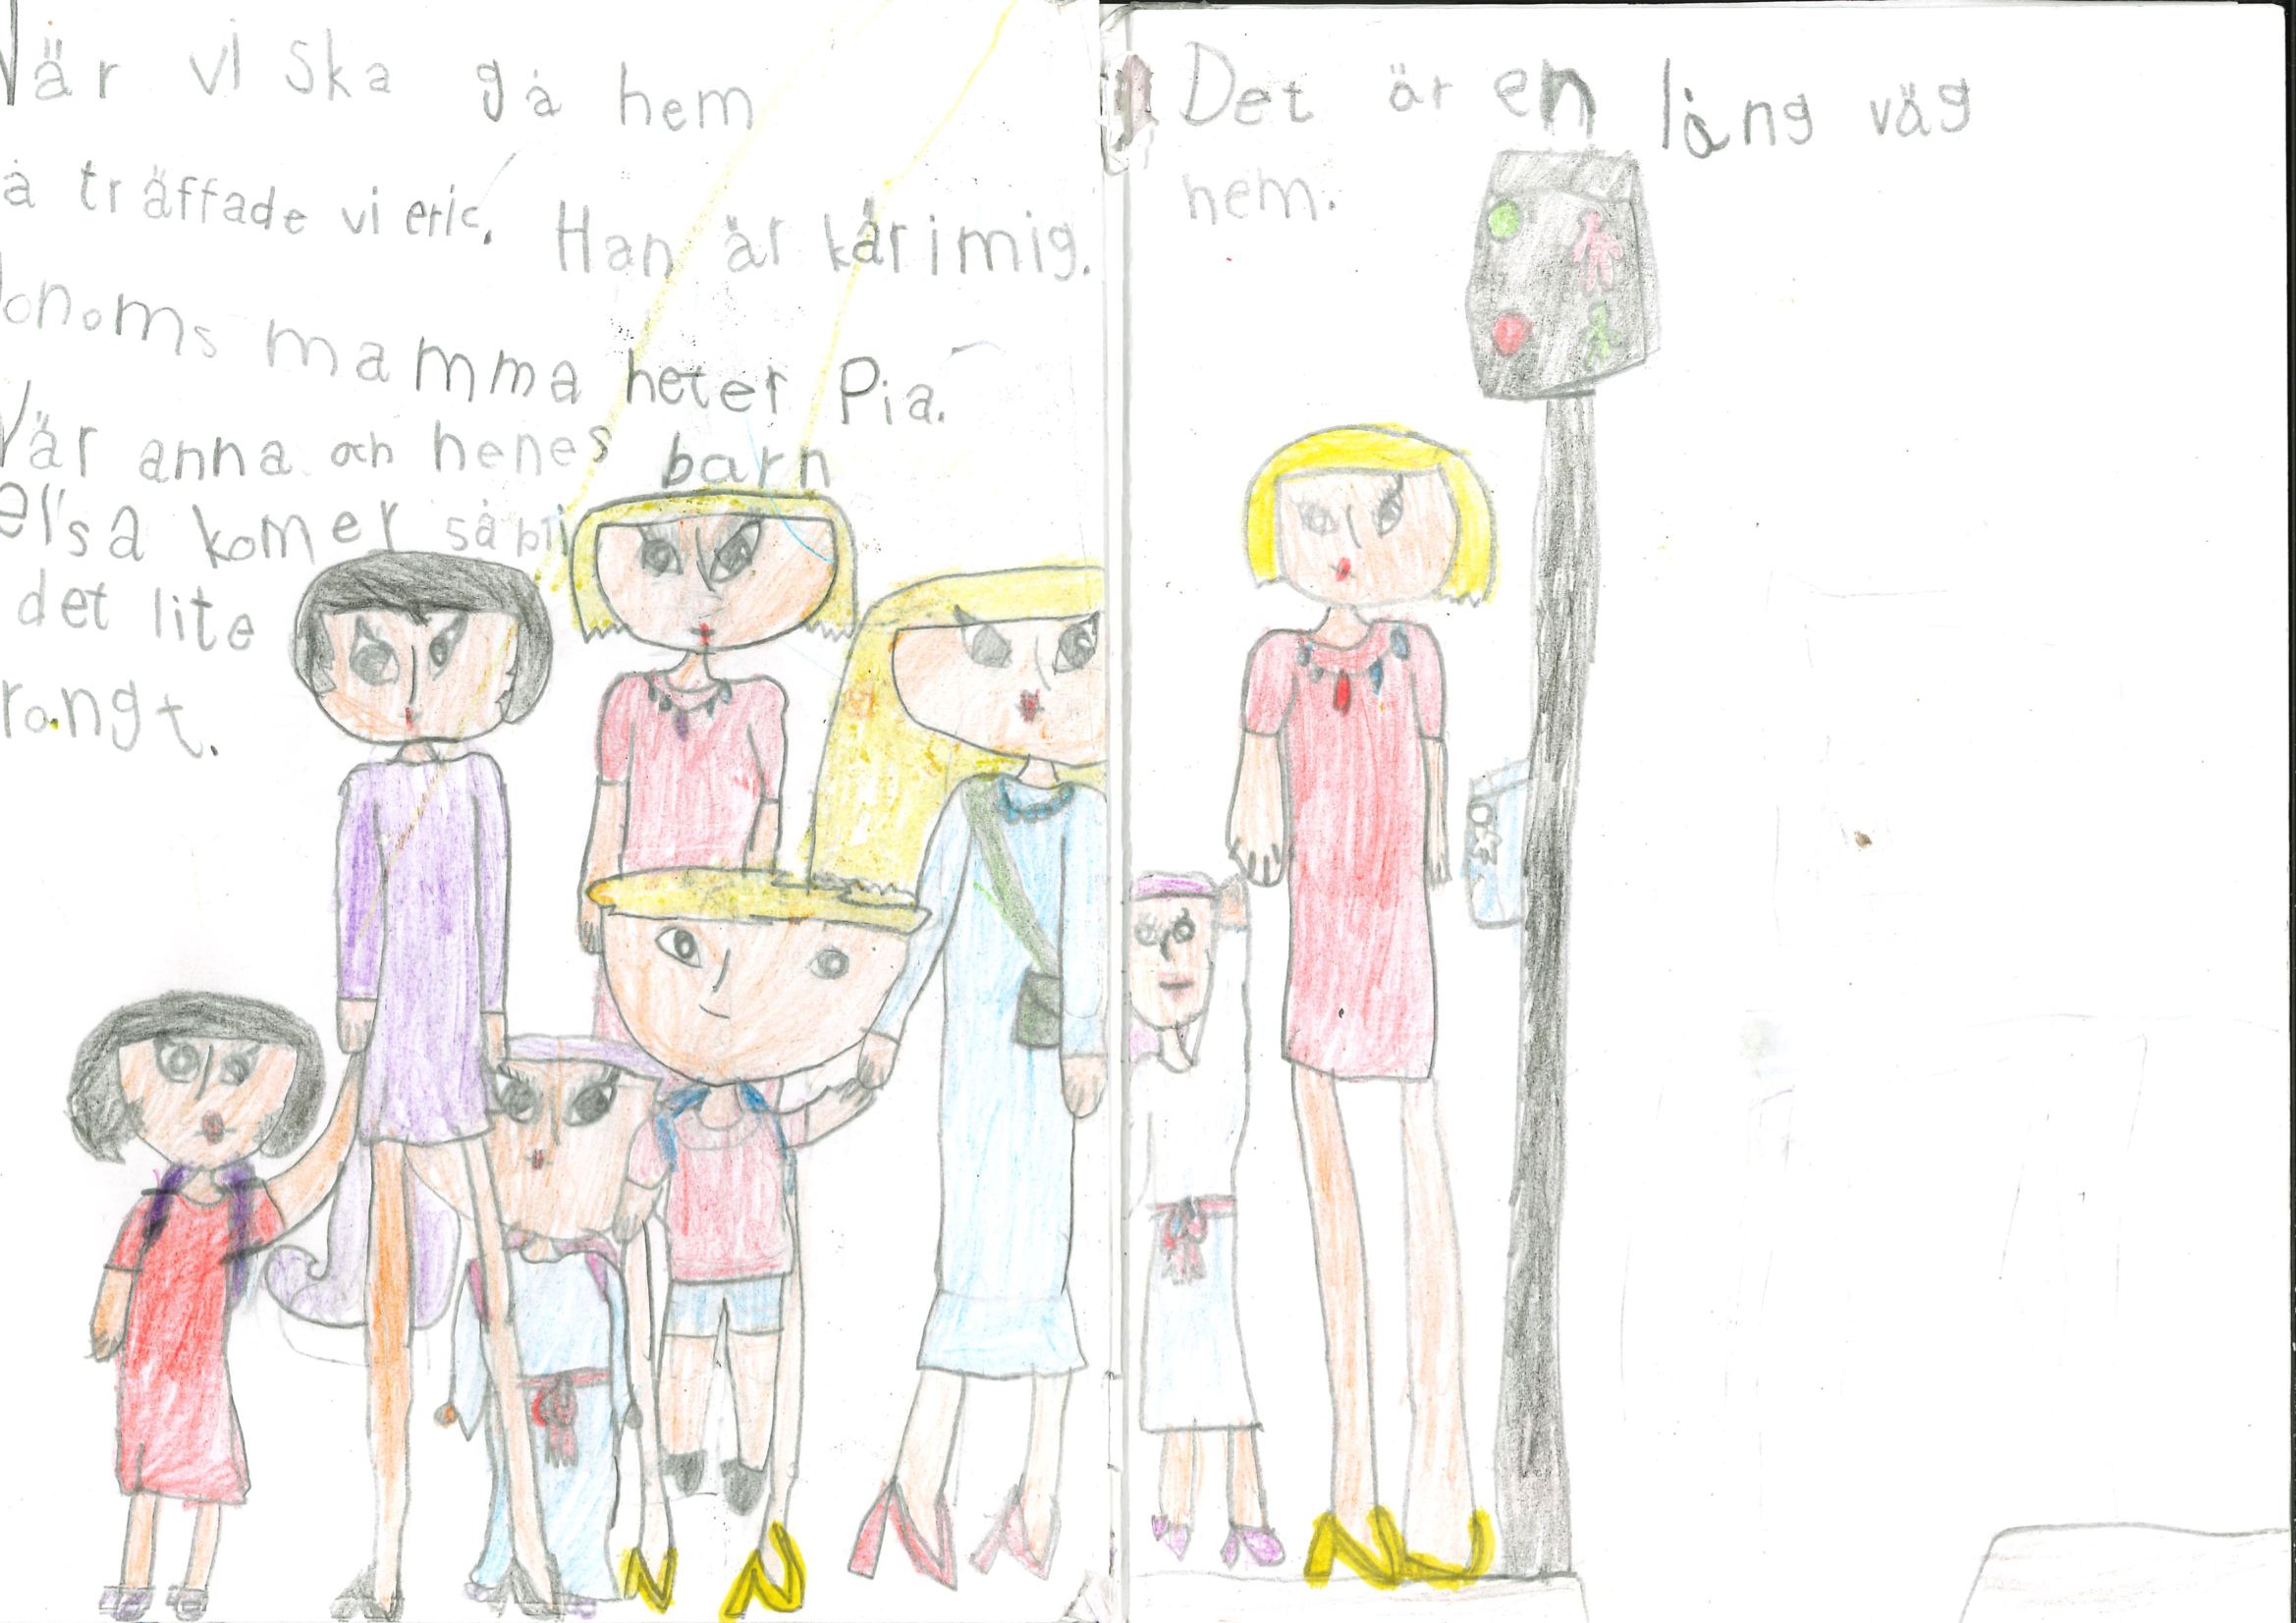 När vi ska gå hem
å träffade vi eric. Han är kär i mig.
Honoms mamma heter Pia.
När anna och henes barn
elsa komer så bli
det lite
rångt.
Det är en lång väg
hem.